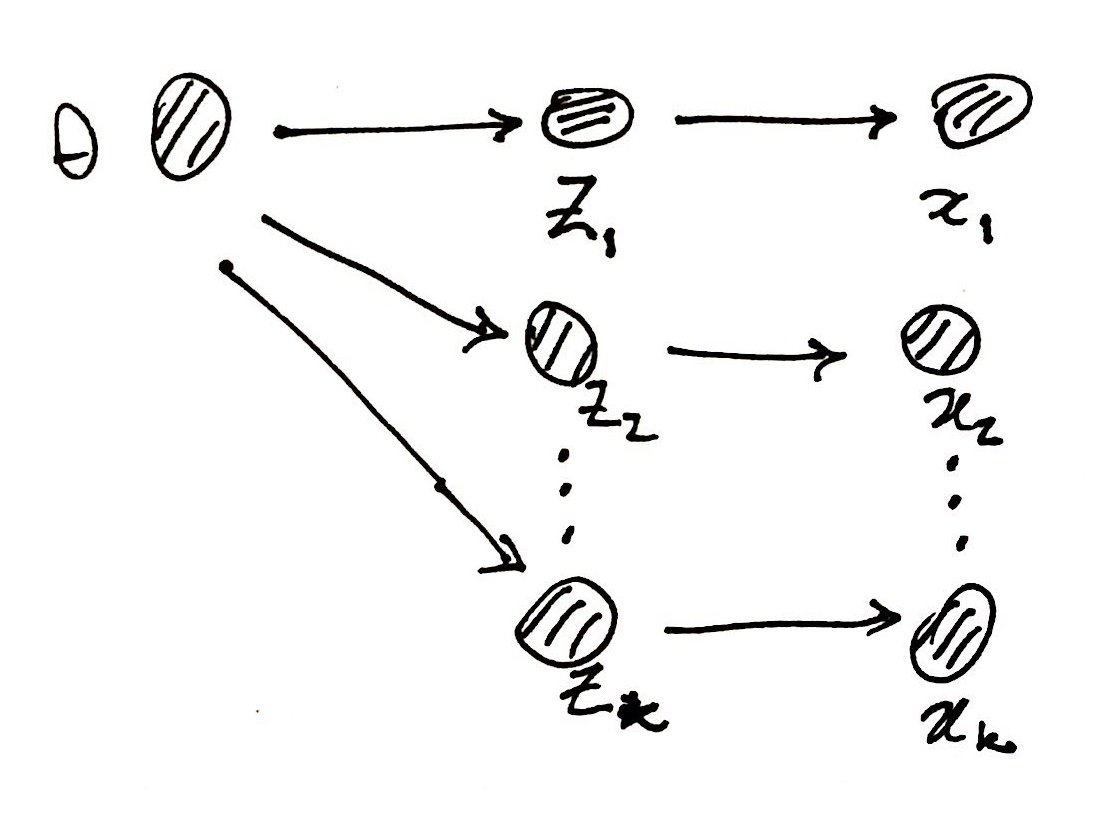 θ
Z₁ x₁
Z₂ x₂
⋮ ⋮
Zₖ xₖ